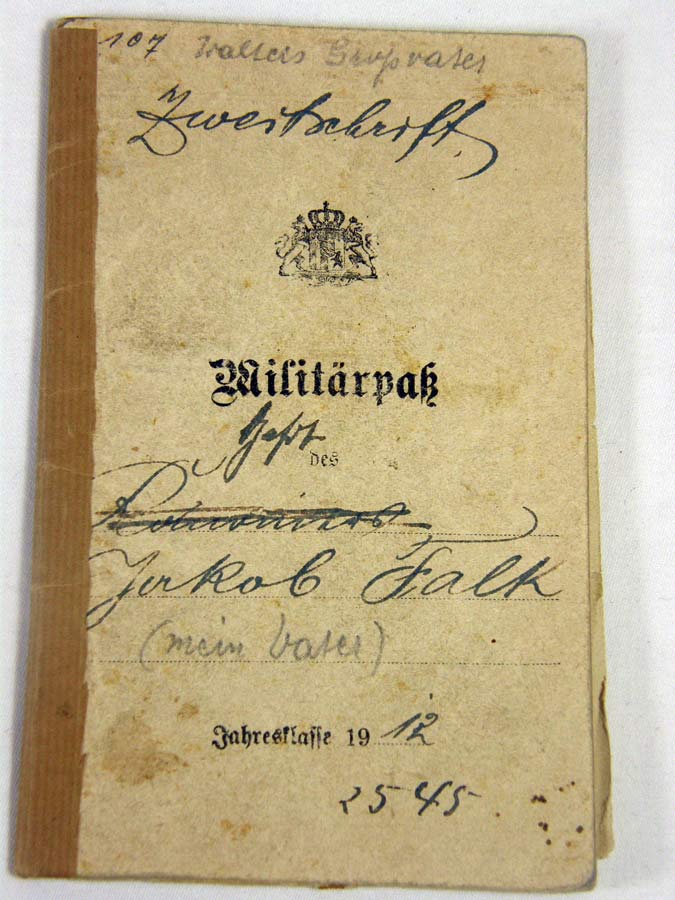 107 Walters Großvater
Zweitschrift
Militärpaß
des
Jakob Falk
(mein Vater)
Jahresklasse 1912
2545